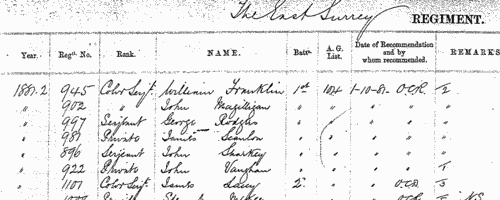 The East Surrey REGIMENT.
Year. Regtl. No. Rank. NAME. Battn. A. G. List. Date of Recommendation and by whom recommended. REMARKS
1881-2 945 Color Serjt. William Franklin 1st 104 1-10-81 O.C.R.
" 902 " John Magilligan " " " "
" 997 Serjeant George Rodgers " " " "
" 987 Private James Scanlon " " " "
" 896 Serjeant John Sharkey " " " "
" 922 Private John Vaughan " " " "
" 1101 Color Serjt. James Lacey 2 " " O.C.R.